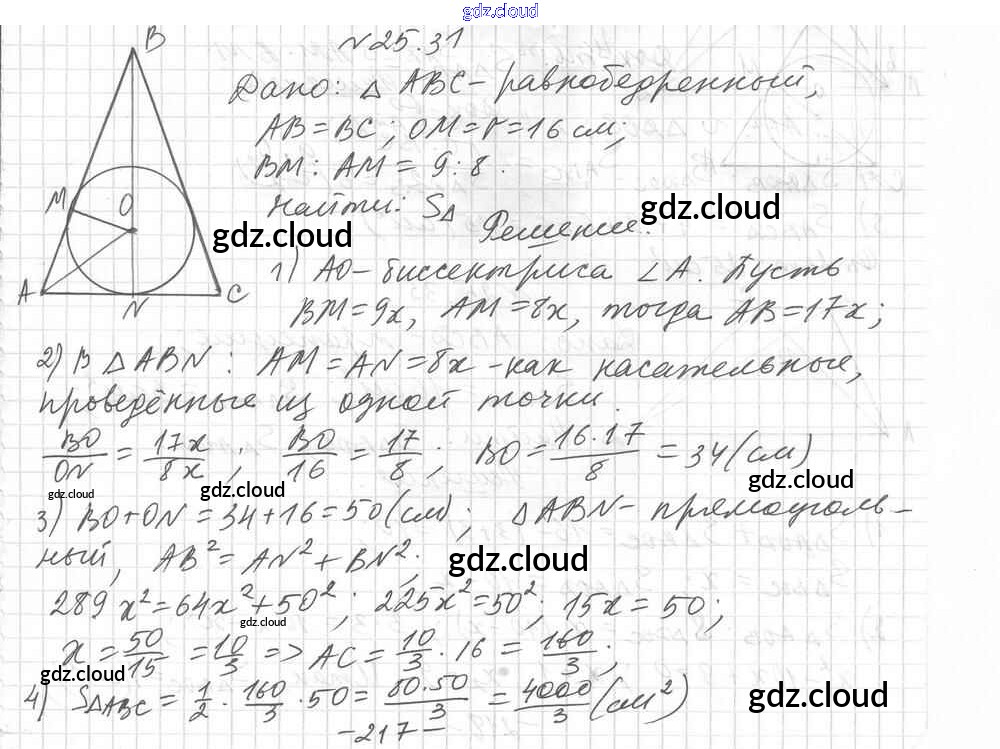 gdz.cloud
№25.31
Дано: △ ABC - равнобедренный,
AB = BC; OM = r = 16 см;
BM : AM = 9 : 8.
Найти: S△
gdz.cloud
gdz.cloud
Решение.
1) AO - биссектриса ∠A. Пусть
BM = 9x, AM = 8x, тогда AB = 17x;
2) В △ ABN: AM = AN = 8x - как касательные,
проведённые из одной точки.
BO/ON = 17x/8x; BO/16 = 17/8; BO = 16·17/8 = 34 (см)
gdz.cloud
gdz.cloud
gdz.cloud
3) BO + ON = 34 + 16 = 50 (см); △ABN - прямоуголь-
ный, AB² = AN² + BN²;
gdz.cloud
289x² = 64x² + 50²; 225x² = 50²; 15x = 50;
gdz.cloud
x = 50/15 = 10/3 => AC = 10/3 · 16 = 160/3;
gdz.cloud
4) S△ABC = 1/2 · 160/3 · 50 = 80·50/3 = 4000/3 (см²)
gdz.cloud
-217-
B
M
O
A
N
C